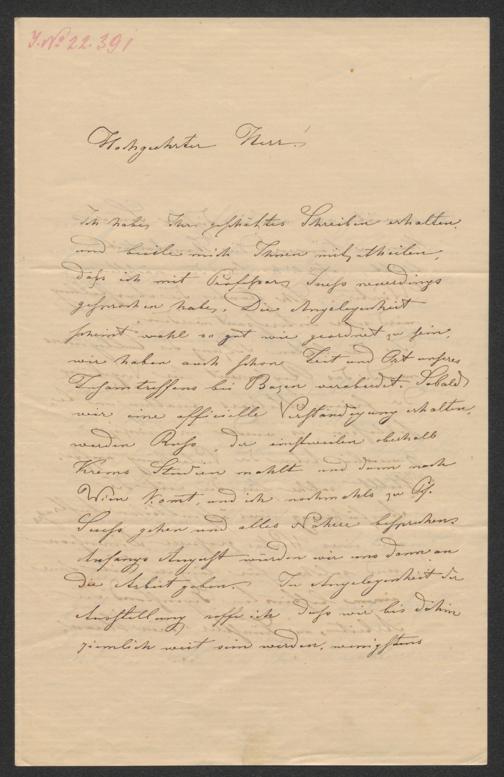 J. No 22.391
Hochgeehrter Herr!
Ich habe, Ihr geschätztes Schreiben erhalten,
und beeile mich Ihnen mitzutheilen,
daß ich mit Professor Sueß neuerdings
gesprochen habe. Die Angelegenheit
scheint wohl so gut wie geordnet zu sein,
wir haben auch schon Zeit und Ort unseres
Zusamtreffens bei Bozen verabredet. Sobald
wir eine officielle Verständigung erhalten,
werden Russ, der einstweilen oberhalb
Krems Studien mahlt und dann nach
Wien komt, und ich nochmahls zu Pf.
Suess gehen und alles Nähere besprechen
Anfangs August würden wir uns dann an
die Arbeit geben. In Angelegenheit der
Ausstellung hoffe ich daß wir bis dahin
ziemlich weit sein werden, wenigstens